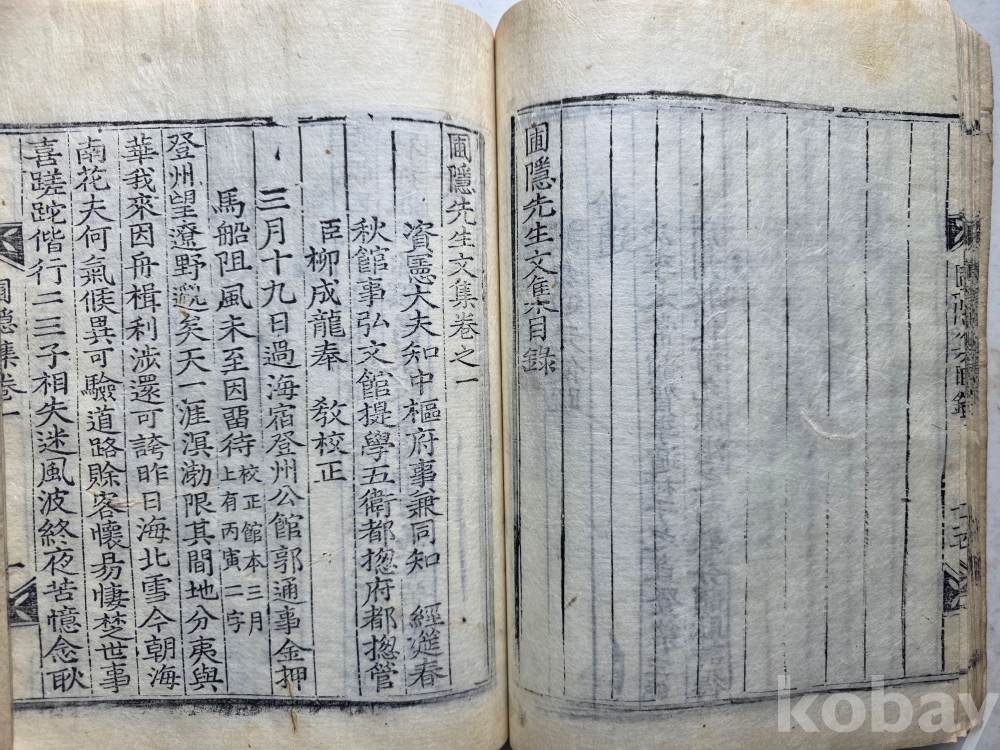 圃隱先生文集目錄
圃隱先生文集卷之一
資憲大夫知中樞府事兼同知 經筵春
秋館事弘文館提學五衛都摠府都摠管
臣柳成龍奉 敎校正
三月十九日過海宿登州公館郭通事金押
馬船阻風未至因留待校正館本三月
上有丙寅二字
登州望遼野邈矣天一涯溟渤限其間地分夷與
華我來因舟楫利涉還可誇昨日海北雪今朝海
南花夫何氣候異可驗道路賒客懷易悽楚世事
喜蹉跎偕行二三子相失迷風波終夜苦憶念耿
圃隱集卷一
一
kobay